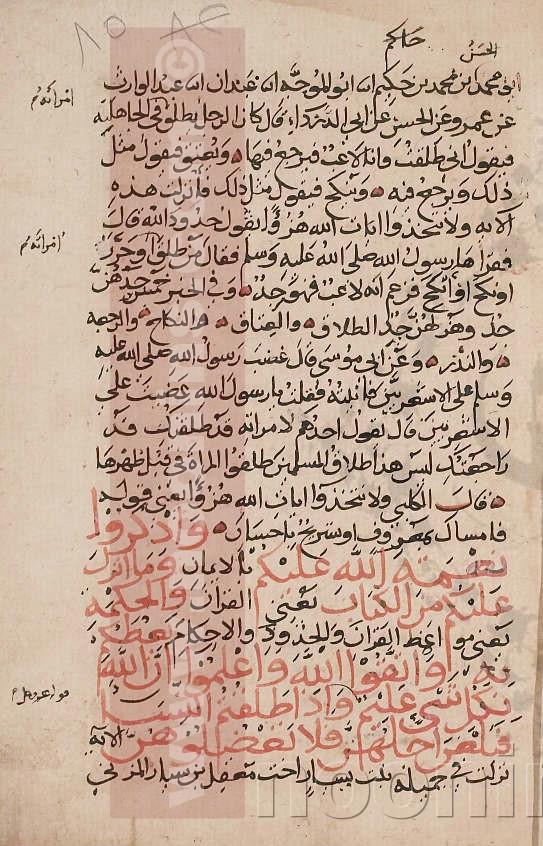 حاكم الحسن
ابو محمد بن محمد بن حكيم انا ابو الموجه انا عبدان انا عبد الوارث
عن عمرو عن الحسن عن ابي الدرداء قال كان الرجل يطلق في الجاهلية
امراته م
فيقول اني طلقت وانا لاعب فيرجع فيها ويعتق فيقول مثل
ذلك ويرجع فيه وينكح فيقول مثل ذلك فانزلت هذه
الاية ولا تتخذوا ايات الله هزؤا يقول حدود الله قال
امراته م
فقراها رسول الله صلى الله عليه وسلم فقال من طلق او حرر
او نكح او انكح فزعم انه لاعب فهو جد وفي الخبر خمس جدهن
جد وهزلهن جد الطلاق والعتاق والنكاح والرجعة
والنذر وعن ابي موسى قال غضب رسول الله صلى الله عليه
وسلم على الاشعريين فاتيته فقلت يا رسول الله غضبت على
الاشعريين قال يقول احدكم لامراته قد طلقتك قد
راجعتك ليس هذا طلاق المسلمين طلقوا المراة في قبل طهرها
قال الكلبي ولا تتخذوا ايات الله هزؤا يعني قوله
فامساك بمعروف او تسريح باحسان واذكروا
نعمة الله عليكم بالايمان وما انزل
عليكم من الكتاب يعني القران والحكمة
يعني مواعظ القران والحدود والاحكام يعظكم
به واتقوا الله واعلموا ان الله
بكل شي عليم واذا طلقتم النسا
فبلغن اجلهن فلا تعضلوهن الاية
نزلت في جميلة بنت يسار اخت معقل بن يسار المزني
noorlib